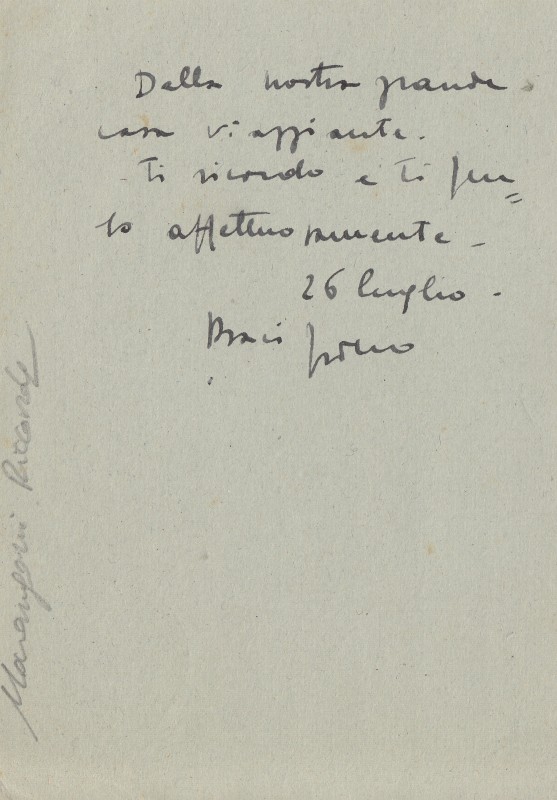 Dalla nostra grande
casa viaggiante.
ti ricordo e ti pen=
so affettuosamente -
26 luglio -
Baci
Marangoni Riccardo